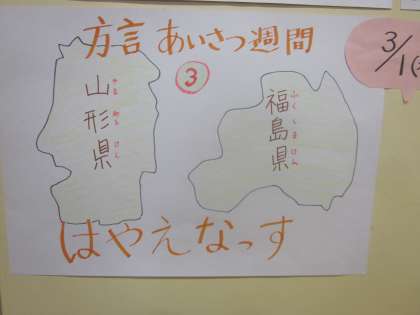 方言 あいさつ週間
3/1
③
山形県
やま がた けん
福島県
ふく しま けん
はやえなっす